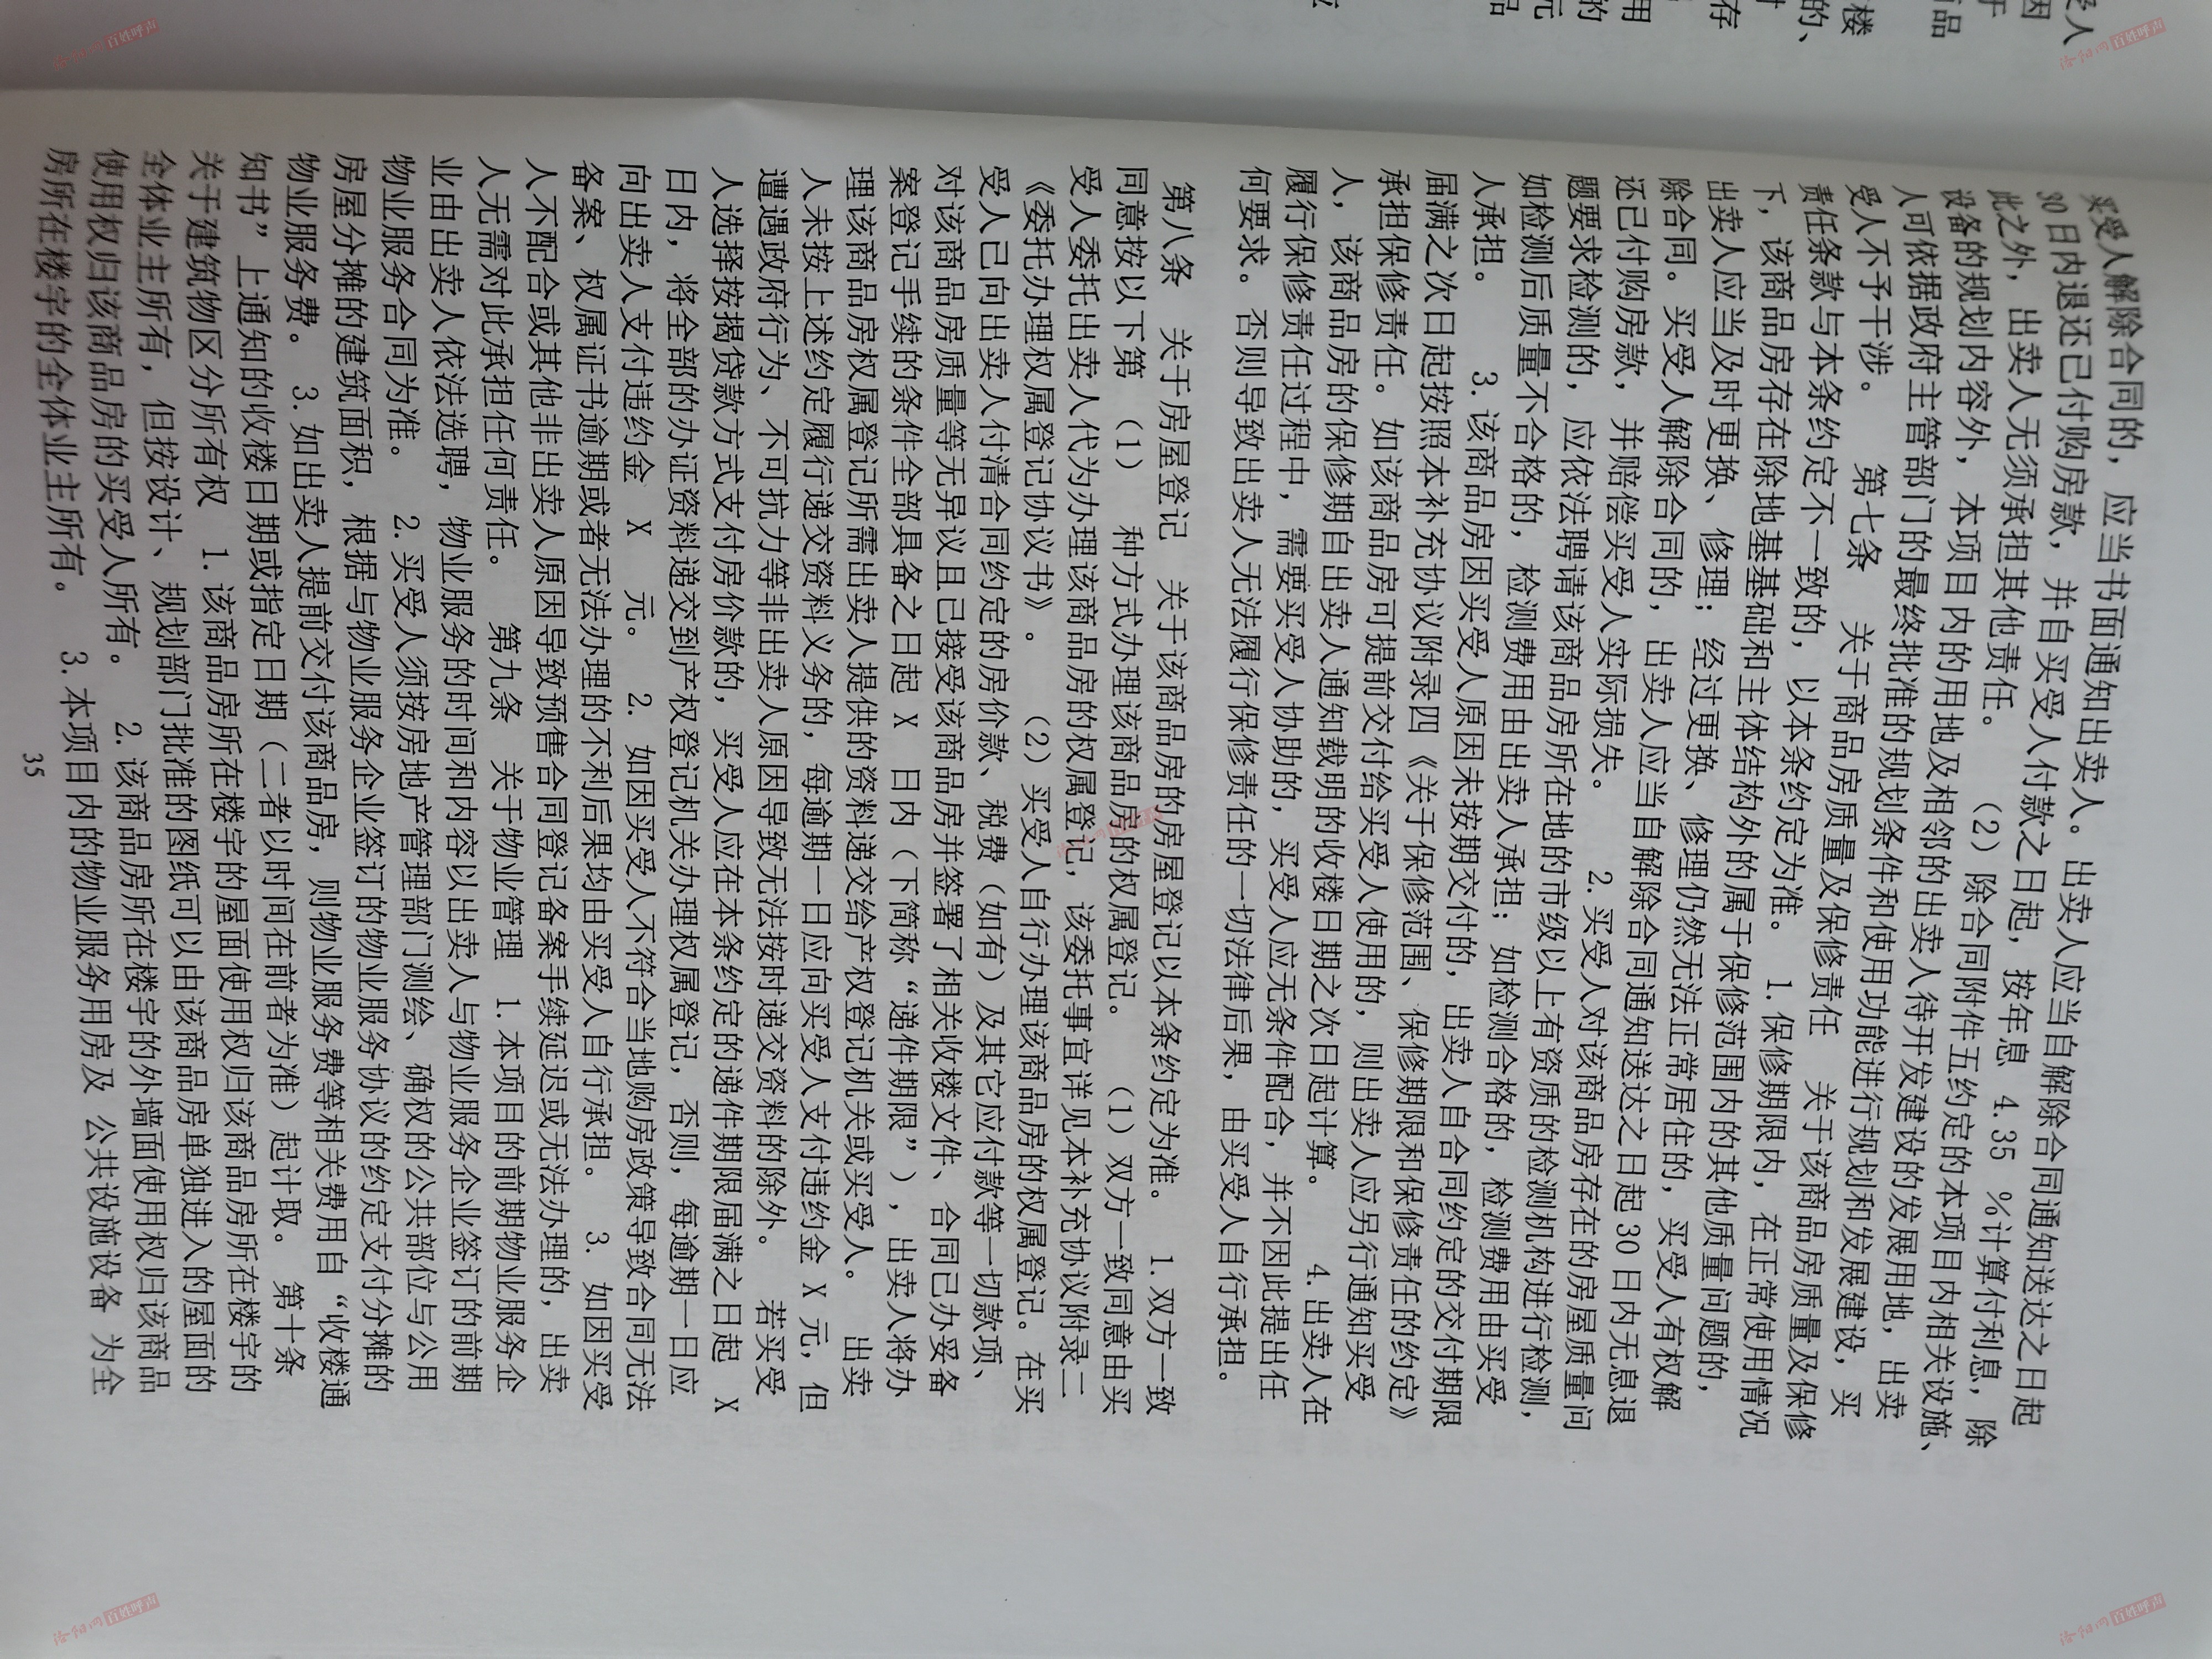 买受人解除合同的，应当书面通知出卖人。出卖人应当自解除合同通知送达之日起
30日内退还已付购房款，并自买受人付款之日起，按年息 4.35 %计算付利息，除
此之外，出卖人无须承担其他责任。 （2）除合同附件五约定的本项目内相关设施、
设备的规划内容外，本项目内的用地及相邻的出卖人待开发建设的发展用地，出卖
人可依据政府主管部门的最终批准的规划条件和使用功能进行规划和发展建设，买
受人不予干涉。 第七条 关于商品房质量及保修责任 关于该商品房质量及保修
责任条款与本条约定不一致的，以本条约定为准。 1.保修期限内，在正常使用情况
下，该商品房存在除地基基础和主体结构外的属于保修范围内的其他质量问题的，
出卖人应当及时更换、修理；经过更换、修理仍然无法正常居住的，买受人有权解
除合同。买受人解除合同的，出卖人应当自解除合同通知送达之日起30日内无息退
还已付购房款，并赔偿买受人实际损失。 2.买受人对该商品房存在的房屋质量问
题要求检测的，应依法聘请该商品房所在地的市级以上有资质的检测机构进行检测，
如检测后质量不合格的，检测费用由出卖人承担；如检测合格的，检测费用由买受
人承担。 3.该商品房因买受人原因未按期交付的，出卖人自合同约定的交付期限
届满之次日起按照本补充协议附录四《关于保修范围、保修期限和保修责任的约定》
承担保修责任。如该商品房可提前交付给买受人使用的，则出卖人应另行通知买受
人，该商品房的保修期自出卖人通知载明的收楼日期之次日起计算。 4.出卖人在
履行保修责任过程中，需要买受人协助的，买受人应无条件配合，并不因此提出任
何要求。否则导致出卖人无法履行保修责任的一切法律后果，由买受人自行承担。
第八条 关于房屋登记 关于该商品房的房屋登记以本条约定为准。 1.双方一致
同意按以下第 （1） 种方式办理该商品房的权属登记。 （1）双方一致同意由买
受人委托出卖人代为办理该商品房的权属登记，该委托事宜详见本补充协议附录二
《委托办理权属登记协议书》。 （2）买受人自行办理该商品房的权属登记。在买
受人已向出卖人付清合同约定的房价款、税费（如有）及其它应付款等一切款项、
对该商品房质量等无异议且已接受该商品房并签署了相关收楼文件、合同已办妥备
案登记手续的条件全部具备之日起 X 日内（下简称“递件期限”），出卖人将办
理该商品房权属登记所需出卖人提供的资料递交给产权登记机关或买受人。 出卖
人未按上述约定履行递交资料义务的，每逾期一日应向买受人支付违约金 X 元，但
遭遇政府行为、不可抗力等非出卖人原因导致无法按时递交资料的除外。 若买受
人选择按揭贷款方式支付房价款的，买受人应在本条约定的递件期限届满之日起 X
日内，将全部的办证资料递交到产权登记机关办理权属登记，否则，每逾期一日应
向出卖人支付违约金 X 元。 2. 如因买受人不符合当地购房政策导致合同无法
备案、权属证书逾期或者无法办理的不利后果均由买受人自行承担。 3. 如因买受
人不配合或其他非出卖人原因导致预售合同登记备案手续延迟或无法办理的，出卖
人无需对此承担任何责任。 第九条 关于物业管理 1.本项目的前期物业服务企
业由出卖人依法选聘，物业服务的时间和内容以出卖人与物业服务企业签订的前期
物业服务合同为准。 2.买受人须按房地产管理部门测绘、确权的公共部位与公用
房屋分摊的建筑面积，根据与物业服务企业签订的物业服务协议的约定支付分摊的
物业服务费。 3.如出卖人提前交付该商品房，则物业服务费等相关费用自“收楼通
知书”上通知的收楼日期或指定日期（二者以时间在前者为准）起计取。 第十条
关于建筑物区分所有权 1.该商品房所在楼宇的屋面使用权归该商品房所在楼宇的
全体业主所有，但按设计、规划部门批准的图纸可以由该商品房单独进入的屋面的
使用权归该商品房的买受人所有。 2.该商品房所在楼宇的外墙面使用权归该商品
房所在楼宇的全体业主所有。 3.本项目内的物业服务用房及 公共设施设备 为全
35
洛阳网百姓呼声